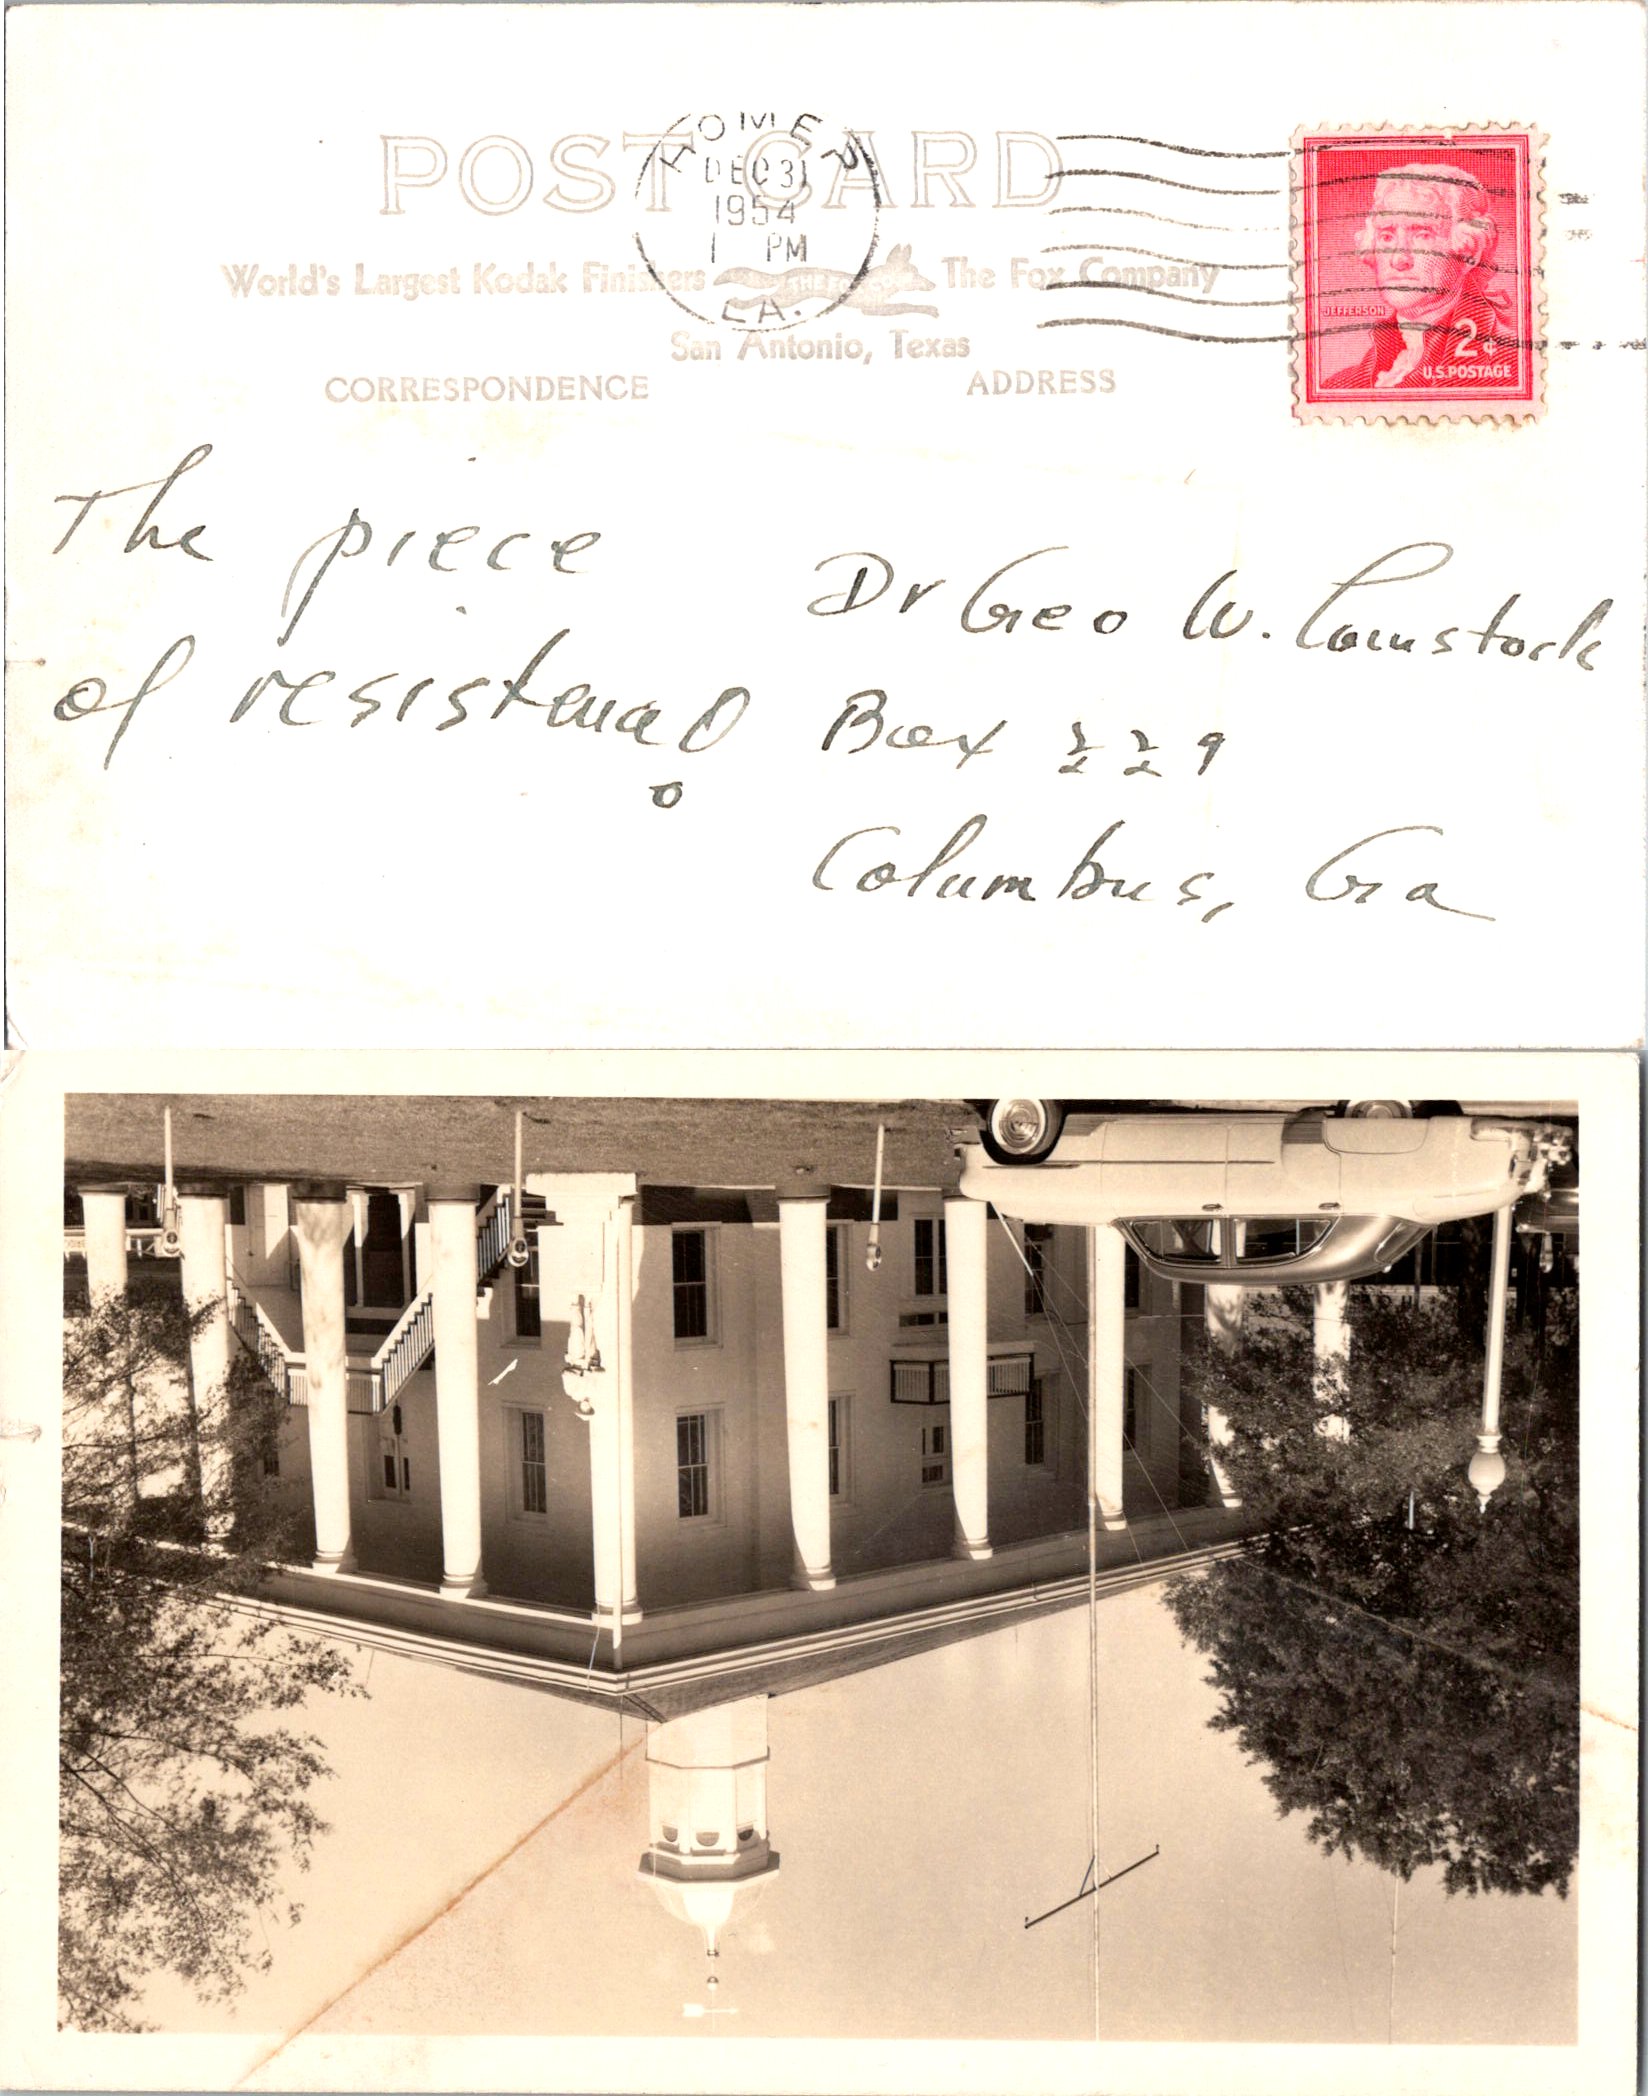 POST CARD
HOMER
DEC 31
1954
1 PM
LA.
World's Largest Kodak Finishers THE FOX The Fox Company
San Antonio, Texas
CORRESPONDENCE ADDRESS
JEFFERSON
2¢
U.S. POSTAGE
The piece
of
Dr Geo W. Comstock
Box 229
Columbus, Ga